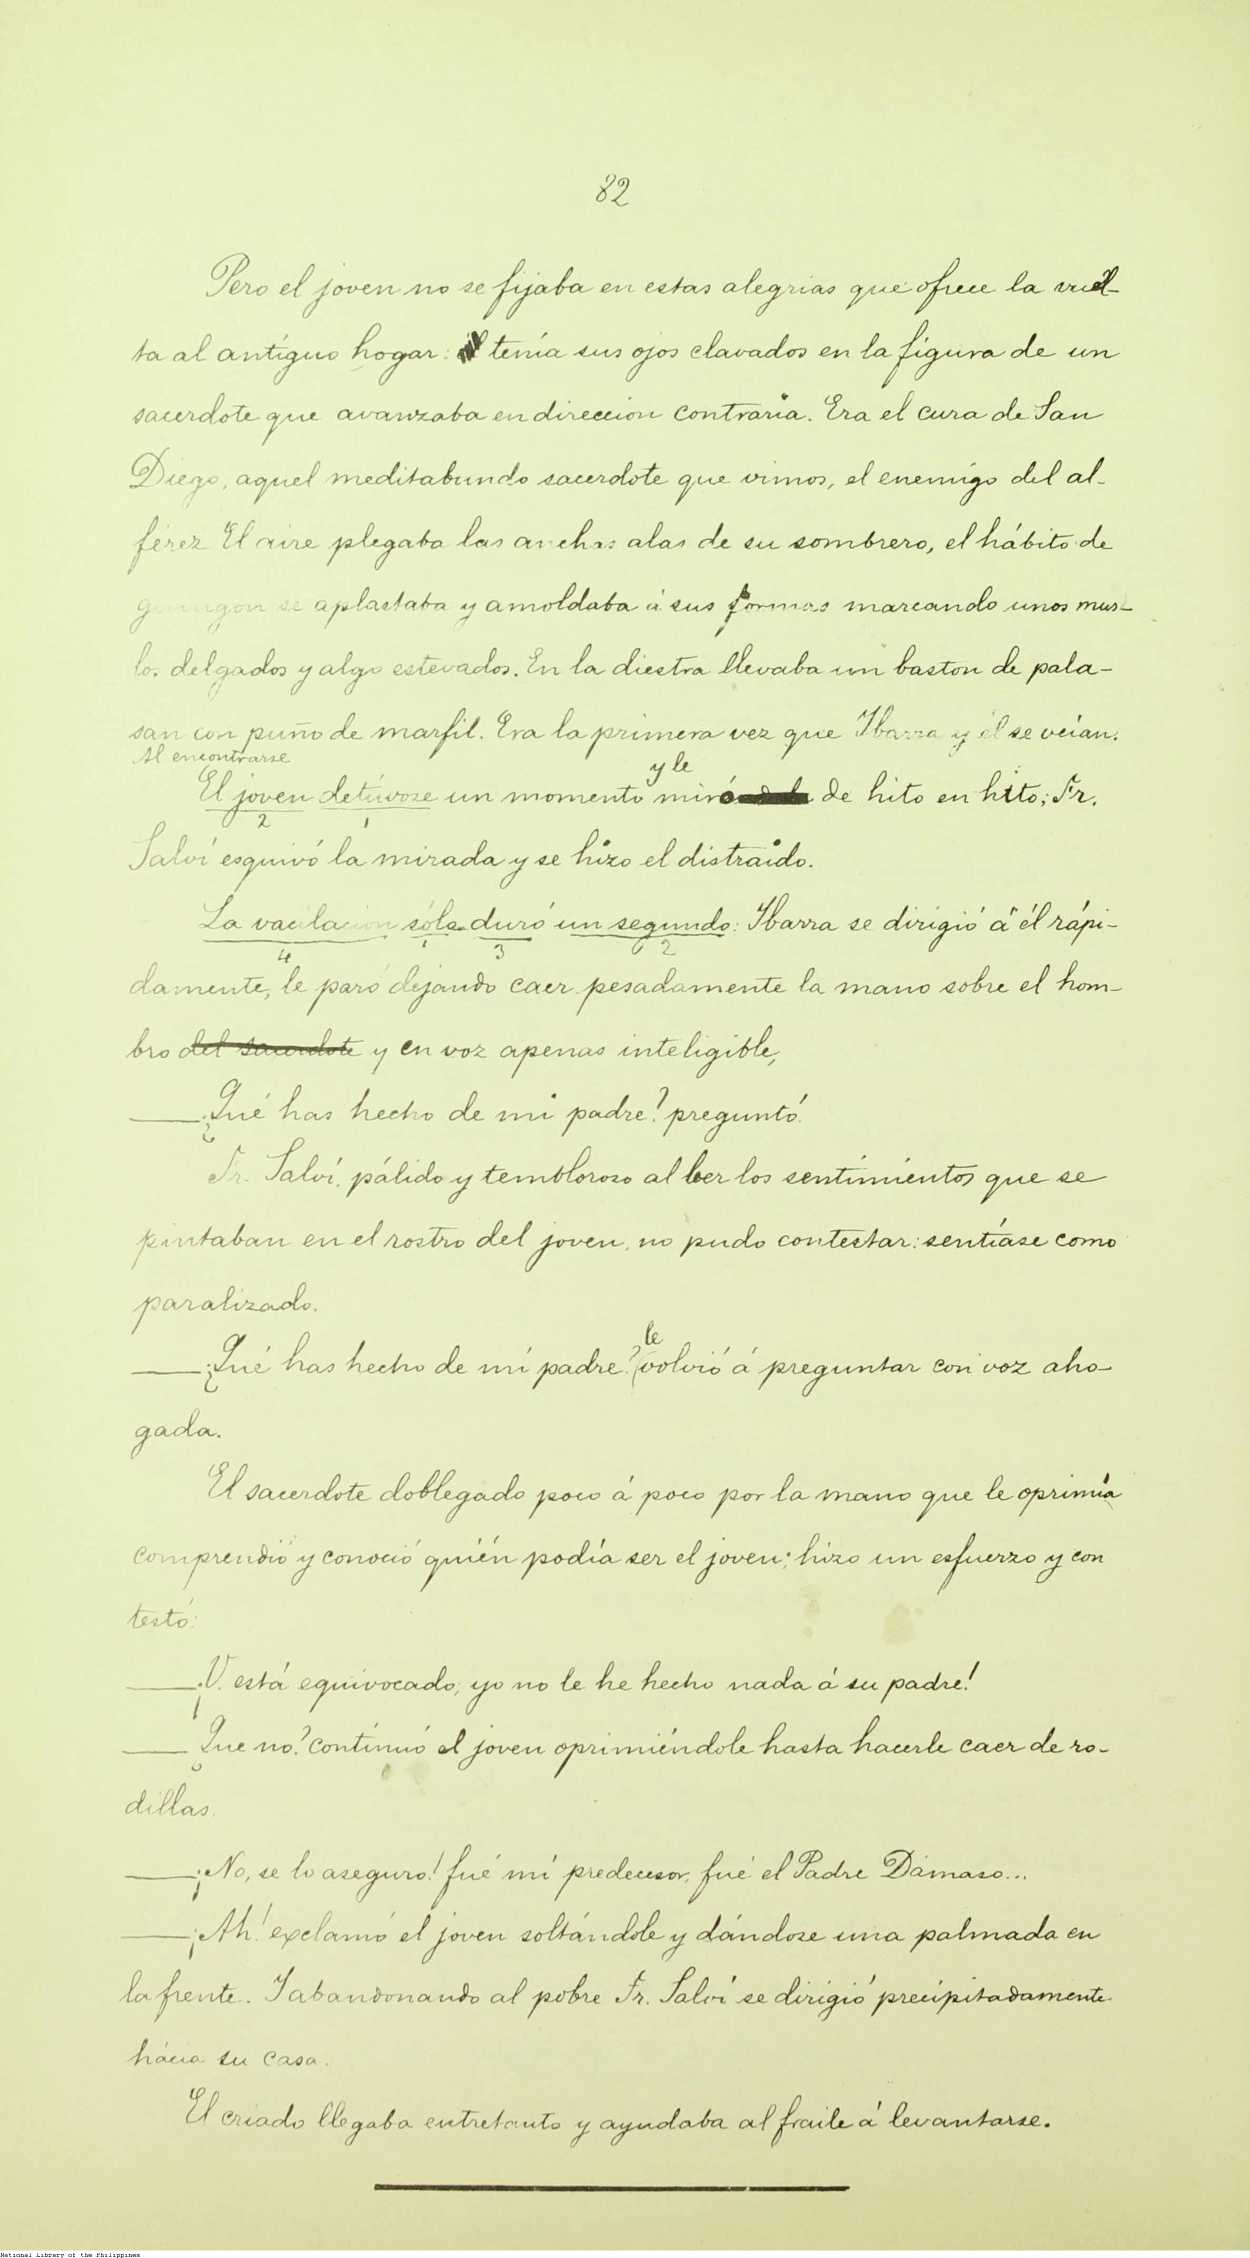 82
Pero el joven no se fijaba en estas alegrias que ofrece la vuel-
ta al antíguo hogar: tenía sus ojos clavados en la fígura de un
sacerdote que avanzaba en direccion contraria. Era el cura de San
Diego, aquel meditabundo sacerdote que vimos, el enemigo del al-
férez El aire plegaba las anchas alas de su sombrero, el hábito de
guingon se aplastaba y amoldaba á sus formas marcando unos mus-
los delgados y algo estevados. En la diestra llevaba un baston de pala-
san con puño de marfil. Era la primera vez que Ibarra y él se veían.
Al encontrarse
y le
El joven detúvose un momento miró de hito en hito; Fr.
2 1
Salví esquivó la mirada y se hizo el distraido.
La vacilacion sólo duró un segundo: Ibarra se dirigió á él rápi-
4 1 3 2
damente, le paró dejando caer pesadamente la mano sobre el hom-
bro del sacerdote y en voz apenas inteligible,
—¿Qué has hecho de mi padre? preguntó.
Fr. Salví, pálido y tembloroso al leer los sentimientos que se
pintaban en el rostro del joven, no pudo contestar: sentíase como
paralizado.
le
—¿Qué has hecho de mí padre? volvió á preguntar con voz aho-
gada.
El sacerdote doblegado poco á poco por la mano que le oprimía
comprendió y conoció quién podía ser el joven; hizo un esfuerzo y con
testó:
—¡V. está equivocado; yo no le he hecho nada á su padre!
—¿Que no? contínuó el joven oprimiéndole hasta hacerle caer de ro-
dillas.
—¡No, se lo aseguro! fué mí predecesor, fué el Padre Dámaso...
—¡Ah! exclamó el joven soltándole y dándose una palmada en
la frente. Y abandonando al pobre Fr. Salví se dirigió precipitadamente
hácia su casa.
El criado llegaba entretanto y ayudaba al fraile á levantarse.
National Library of the Philippines